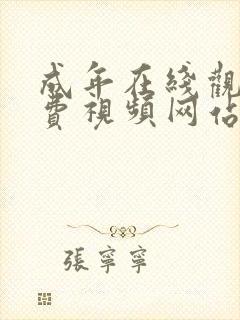 成年在綫觀
費視頻网佔
張寧寧